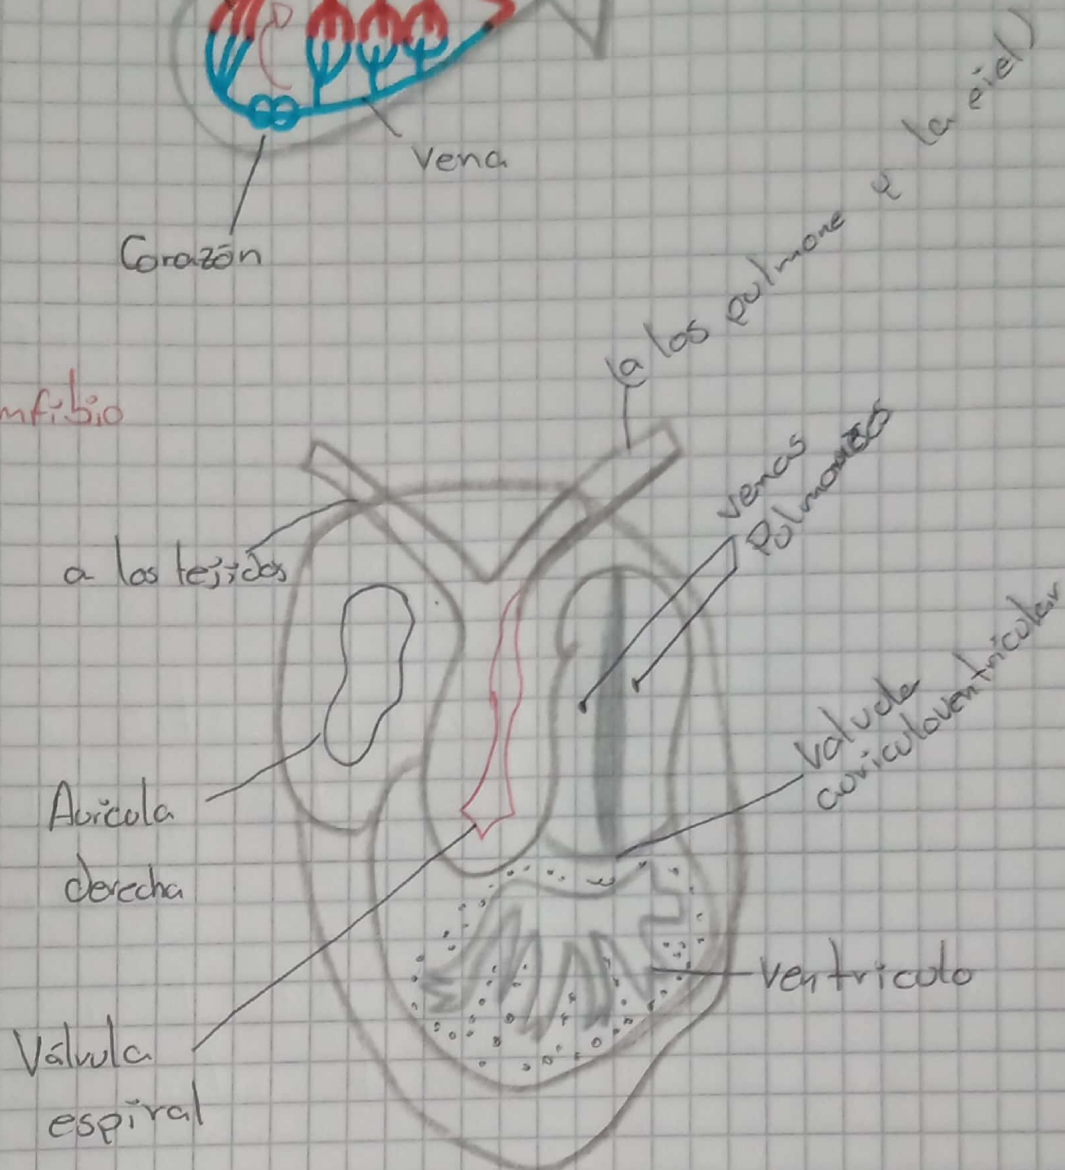 Vena
Corazón
nfibio
(a los pulmone y la piel)
venas
Pulmonares
a los tejidos
Valvula
auriculoventricular
Auricola
derecha
Ventriculo
Válvula
espiral